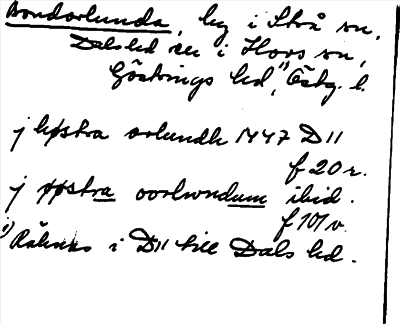 Bondorlunda, by i Strå sn,
Dals hd nu i Hovs sn,
Göstrings hd, Östg. l.
j høstra orlundh 1447 D 11
f 20 r.
j østra oorlwndum ibid.
f 101 v.
1) Räknas i D 11 till Dals hd.